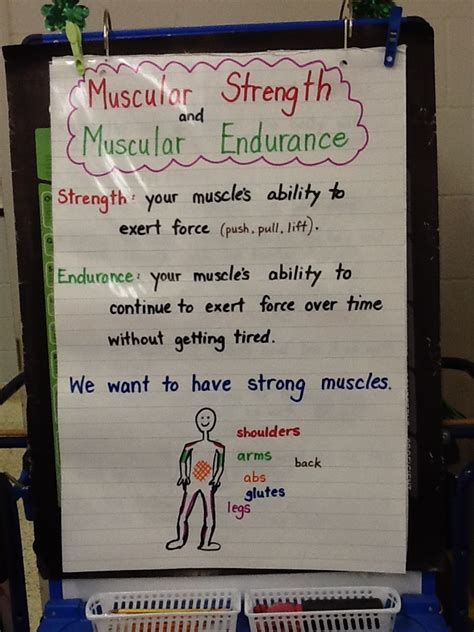 Muscular Strength
and
Muscular Endurance
Strength: your muscle's ability to
exert force (push, pull, lift).
Endurance: your muscle's ability to
continue to exert force over time
without getting tired.
We want to have strong muscles.
shoulders
arms
back
abs
glutes
legs